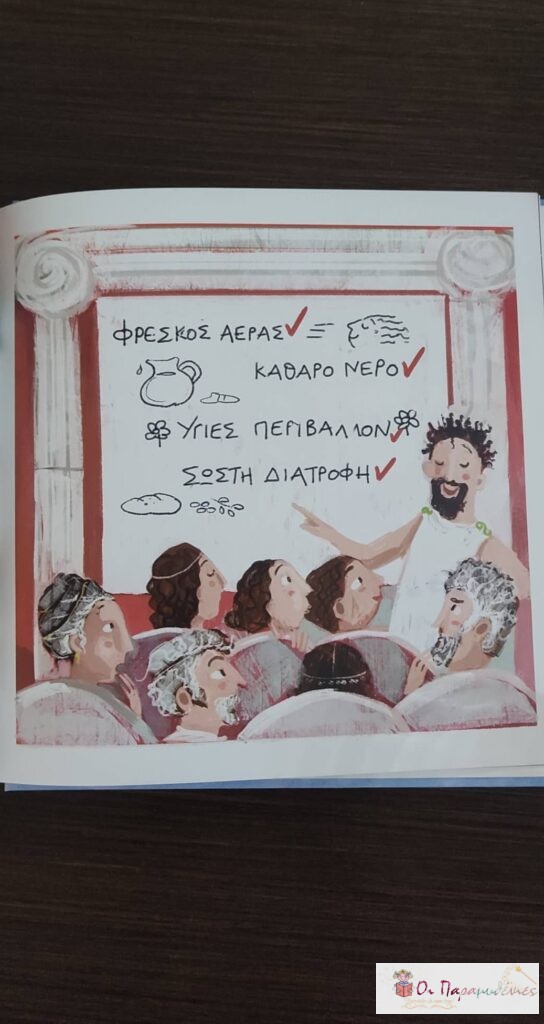 ΦΡΕΣΚΟΣ ΑΕΡΑΣ
ΚΑΘΑΡΟ ΝΕΡΟ
ΥΓΙΕΣ ΠΕΡΙΒΑΛΛΟΝ
ΣΩΣΤΗ ΔΙΑΤΡΟΦΗ
Οι Παραμυθένιες